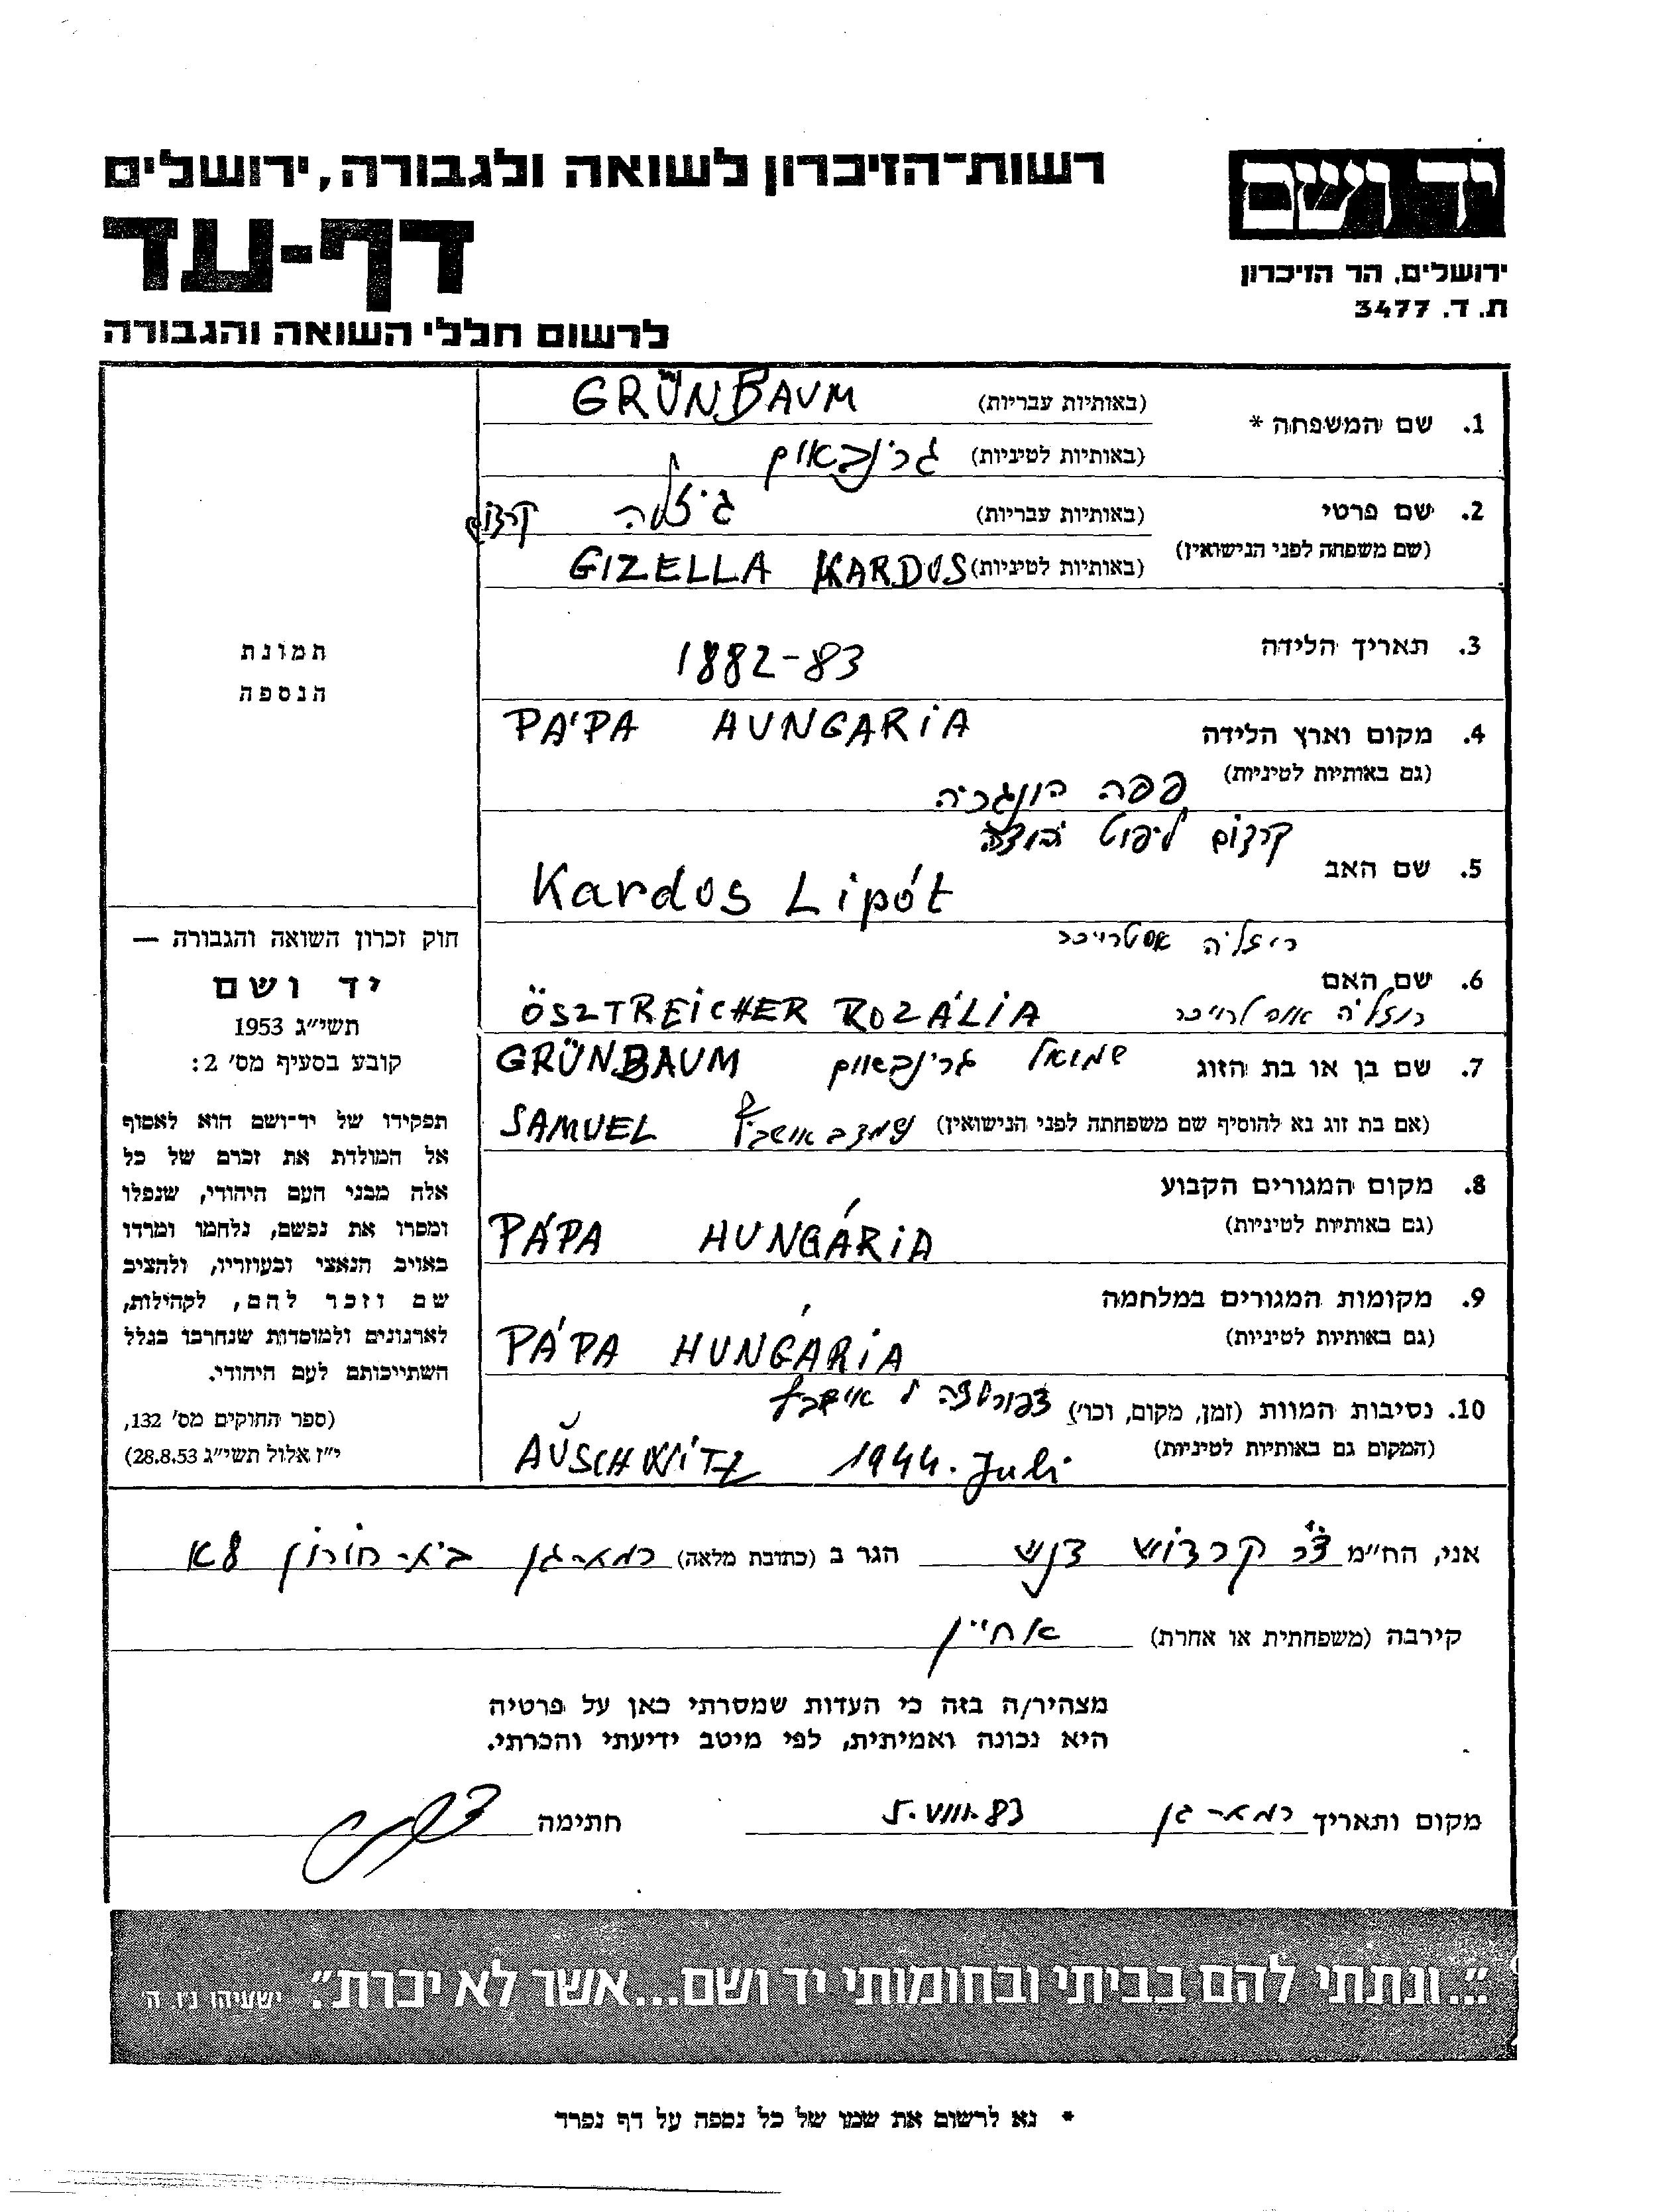 רשות-הזיכרון לשואה ולגבורה, ירושלים
יד ושם
דף-עד
ירושלים, הר הזיכרון
ת. ד. 3477
לרשום חללי השואה והגבורה
1. שם המשפחה * (באותיות עבריות) GRÜNBAUM
(באותיות לטיניות) גרינבאום
2. שם פרטי (באותיות עבריות) גיזלה קרדוש
(שם משפחה לפני הנישואין) (באותיות לטיניות) GIZELLA KARDOS
3. תאריך הלידה 1882-83
4. מקום וארץ הלידה PÁPA HUNGARiA
(גם באותיות לטיניות) פפה הונגריה
קרדוש ליפוט
5. שם האב Kardos Lipót
רוזליה אסטרייכר
6. שם האם ÖSZTREiCHER ROZÁLiA
רוזליה אוסטרייכר
7. שם בן או בת הזוג שמואל גרינבאום GRÜNBAUM
(אם בת זוג נא להוסיף שם משפחתה לפני הנישואין) SAMUEL
8. מקום המגורים הקבוע
(גם באותיות לטיניות) PÁPA HUNGÁRiA
9. מקומות המגורים במלחמה
(גם באותיות לטיניות) PÁPA HUNGÁRiA
10. נסיבות המוות (זמן, מקום, וכו')
(המקום גם באותיות לטיניות) AUSCHWiTZ 1944. Juli
תמונת
הנספה
חוק זכרון השואה והגבורה —
יד ושם
תשי״ג 1953
קובע בסעיף מס' 2:
תפקידו של יד-ושם הוא לאסוף
אל המולדת את זכרם של כל
אלה מבני העם היהודי, שנפלו
ומסרו את נפשם, נלחמו ומרדו
באויב הנאצי ובעוזריו, ולהציב
שם וזכר להם, לקהילות,
לארגונים ולמוסדות שנחרבו בגלל
השתייכותם לעם היהודי.
(ספר החוקים מס' 132,
י״ז אלול תשי״ג 28.8.53)
אני, הח״מ ד״ר קרדוש דנש הגר ב (כתובת מלאה) רמת-גן בית-חורון 8א
קירבה (משפחתית או אחרת) אחיין
מצהיר/ה בזה כי העדות שמסרתי כאן על פרטיה
היא נכונה ואמיתית, לפי מיטב ידיעתי והכרתי.
מקום ותאריך רמת-גן 5.VIII.83 חתימה
"...ונתתי להם בביתי ובחומותי יד ושם...אשר לא יכרת". ישעיהו נ״ו. ה'
* נא לרשום את שמו של כל נספה על דף נפרד